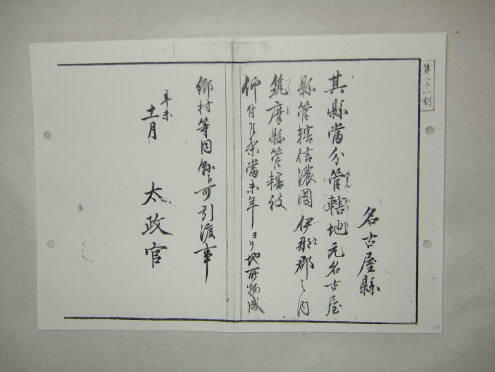 第二十一
名古屋縣
其縣當分管轄地元名古屋
縣管轄信濃國伊那郡之内
筑摩縣管轄被
仰付候條當未年ヨリ地所物成
郷村等同縣ヘ可引渡事
辛未
十一月
太政官